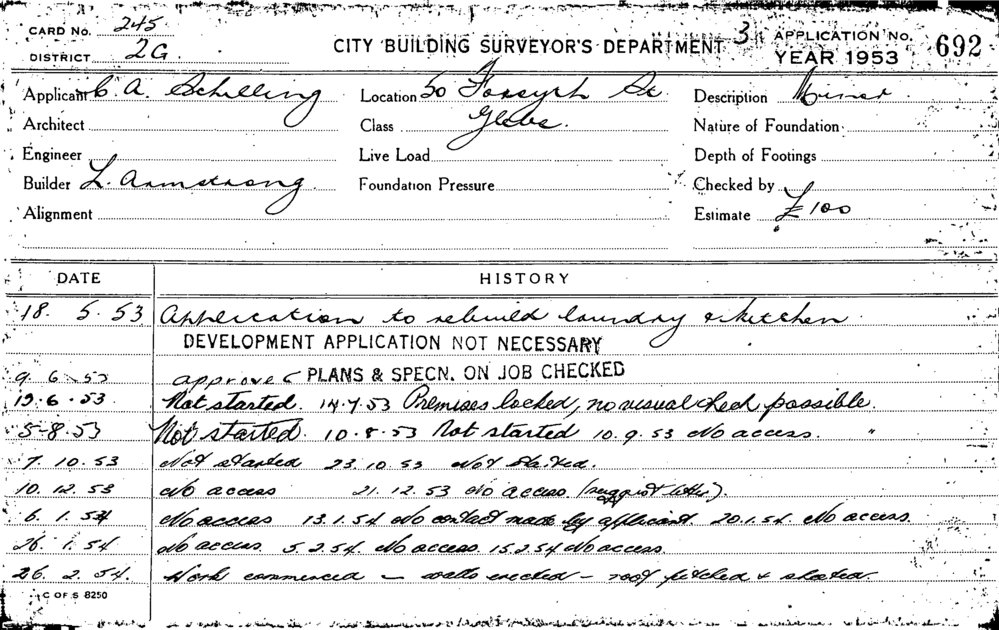 CARD No. 245
DISTRICT 2G.
CITY BUILDING SURVEYOR'S DEPARTMENT 3
APPLICATION No. 692
YEAR 1953
Applicant C. A. Schilling
Location 50 Forsyth St.
Description Minor
Architect
Class Glebe.
Nature of Foundation
Engineer
Live Load
Depth of Footings
Builder L. Armstrong
Foundation Pressure
Checked by
Alignment
Estimate £100
DATE HISTORY
18. 5. 53 Application to rebuild laundry & kitchen
DEVELOPMENT APPLICATION NOT NECESSARY
9. 6. 53 approved PLANS & SPECN. ON JOB CHECKED
19. 6. 53. Not started. 14.7.53 Premises locked, no visual check possible.
5-8.53 Not started. 10.8.53 Not started 10.9.53 No access. "
7. 10. 53 Not started 23.10.53 Not started.
10. 12. 53 No access 21.12.53 No access (suggest letter).
6. 1. 54 No access 13.1.54 No contact made by applicant 20.1.54. No access.
26. 1. 54 No access. 5.2.54. No access. 15.2.54 No access.
26. 2. 54. Work commenced – walls erected – roof pitched & sheeted.
C OF S 8250